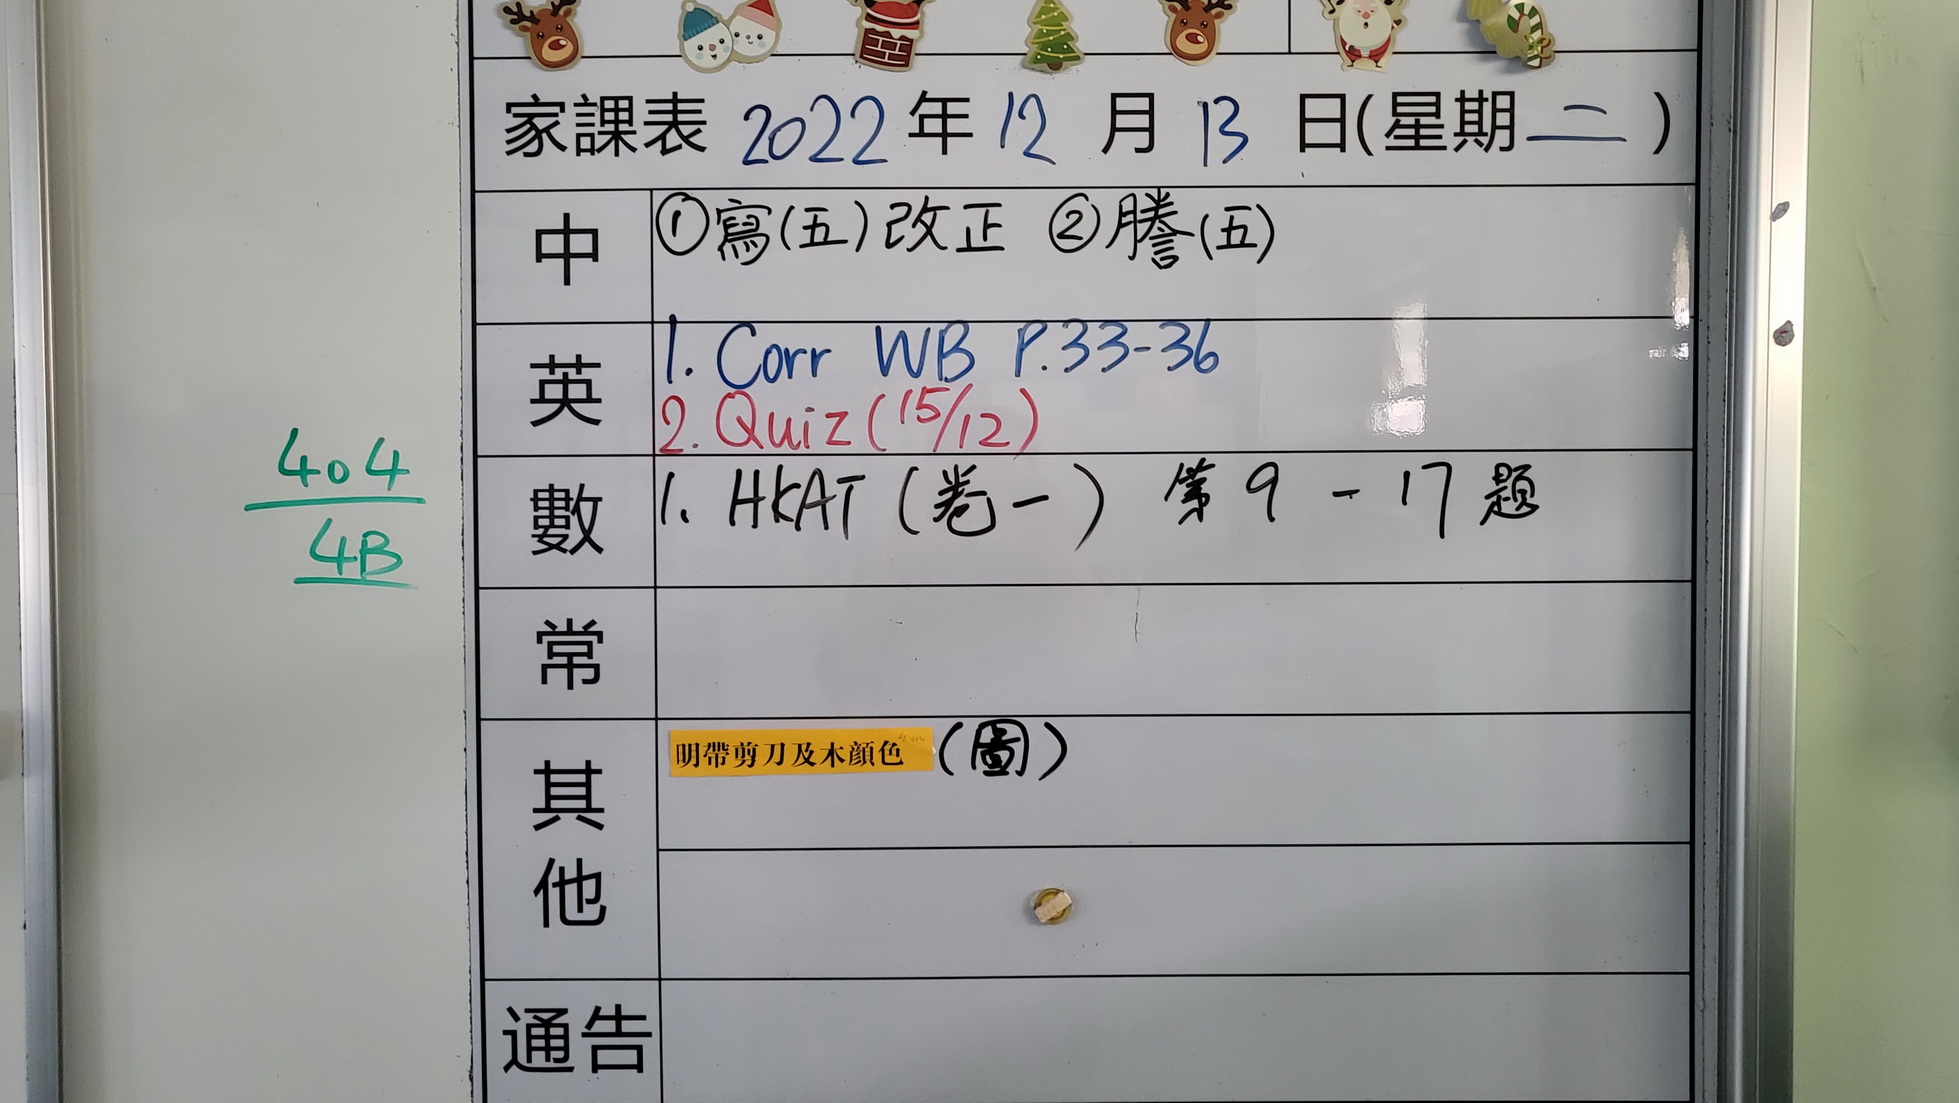 家課表 2022 年 12 月 13 日(星期二)
中 ①寫(五)改正 ②謄(五)
英 1. Corr WB P.33-36
2. Quiz (15/12)
數 1. HKAT (卷一) 第 9 - 17 題
常
其他 明帶剪刀及木顏色 (圖)
通告
404
4B